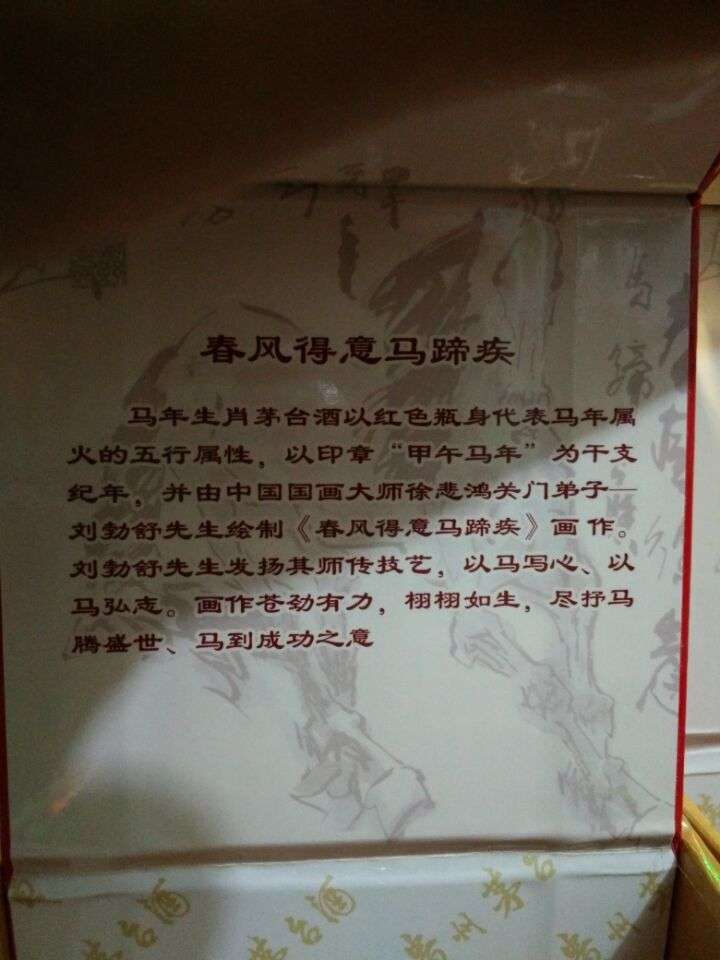 春风得意马蹄疾
马年生肖茅台酒以红色瓶身代表马年属
火的五行属性，以印章“甲午马年”为干支
纪年，并由中国国画大师徐悲鸿关门弟子—
刘勃舒先生绘制《春风得意马蹄疾》画作。
刘勃舒先生发扬其师传技艺，以马写心、以
马弘志。画作苍劲有力，栩栩如生，尽抒马
腾盛世、马到成功之意
茅台酒
茅台酒
贵州茅
贵州茅